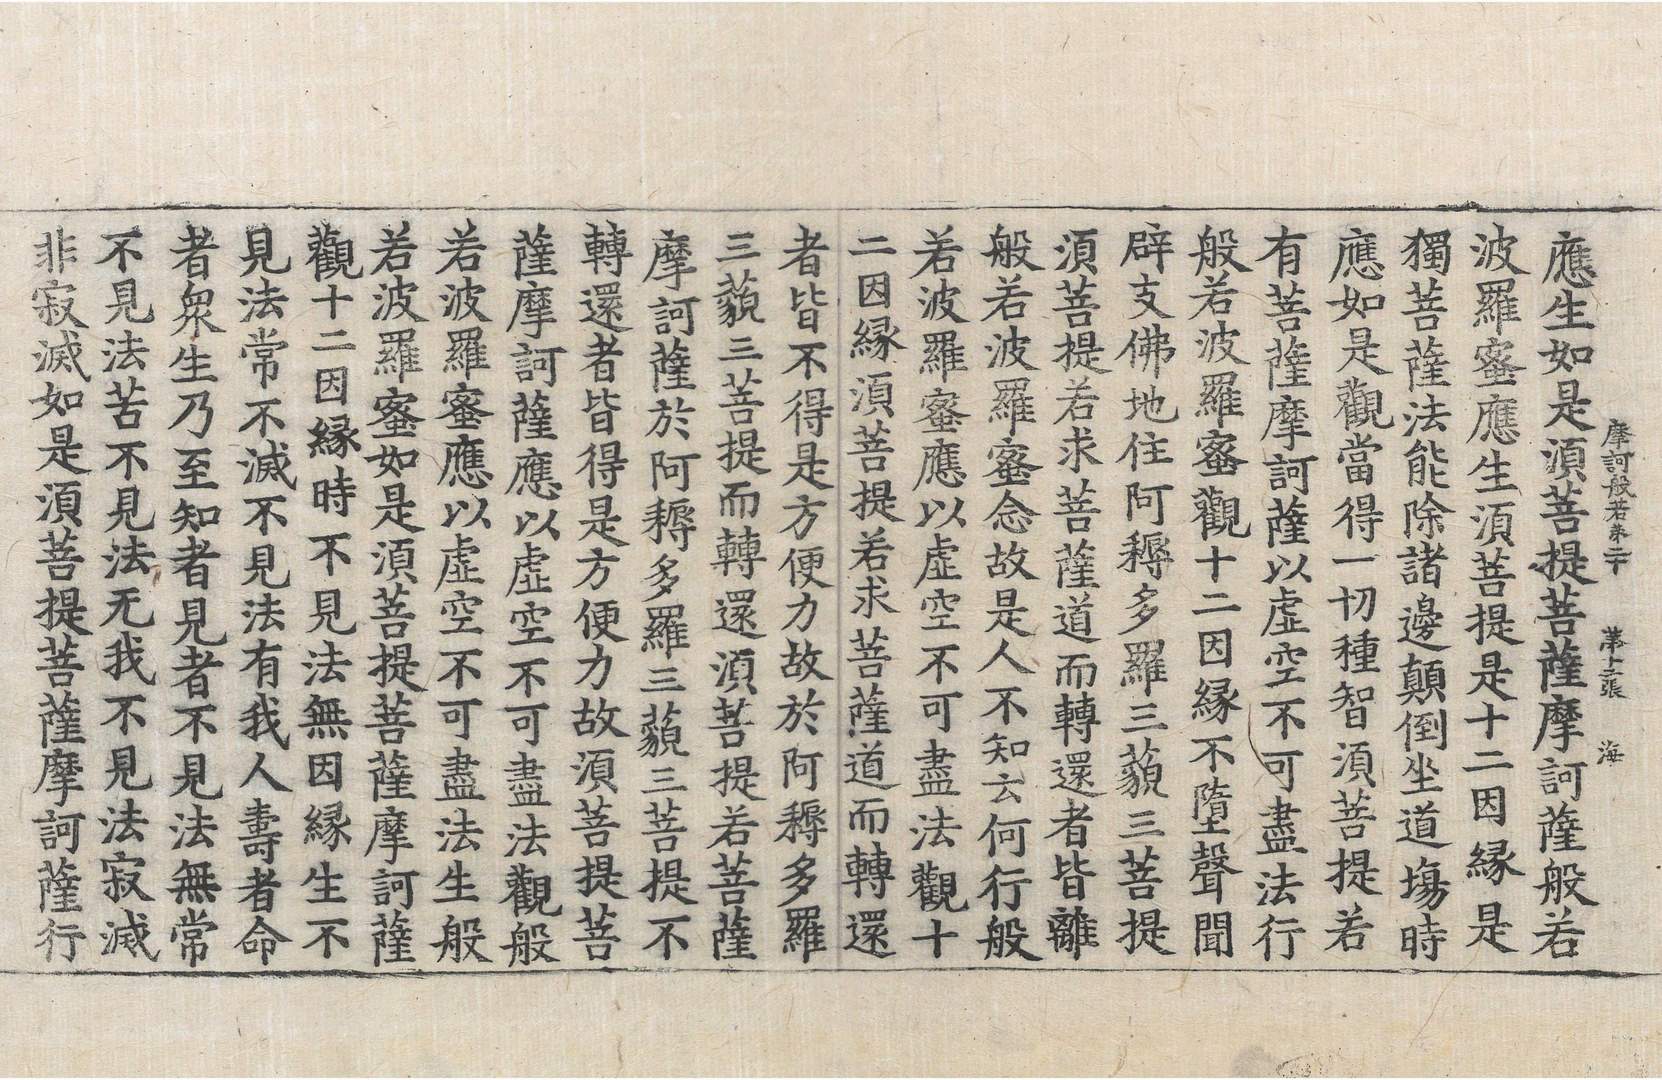 摩訶般若苐二十 苐十三張 海
應生如是湏菩提菩薩摩訶薩般若
波羅蜜應生湏菩提是十二因緣是
獨菩薩法能除諸邊顛倒坐道場時
應如是觀當得一切種智湏菩提若
有菩薩摩訶薩以虛空不可盡法行
般若波羅蜜觀十二因緣不墮聲聞
辟支佛地住阿耨多羅三藐三菩提
湏菩提若求菩薩道而轉還者皆離
般若波羅蜜念故是人不知云何行般
若波羅蜜應以虛空不可盡法觀十
二因緣湏菩提若求菩薩道而轉還
者皆不得是方便力故於阿耨多羅
三藐三菩提而轉還湏菩提若菩薩
摩訶薩於阿耨多羅三藐三菩提不
轉還者皆得是方便力故湏菩提菩
薩摩訶薩應以虛空不可盡法觀般
若波羅蜜應以虛空不可盡法生般
若波羅蜜如是湏菩提菩薩摩訶薩
觀十二因緣時不見法無因緣生不
見法常不滅不見法有我人壽者命
者衆生乃至知者見者不見法無常
不見法苦不見法无我不見法寂滅
非寂滅如是湏菩提菩薩摩訶薩行